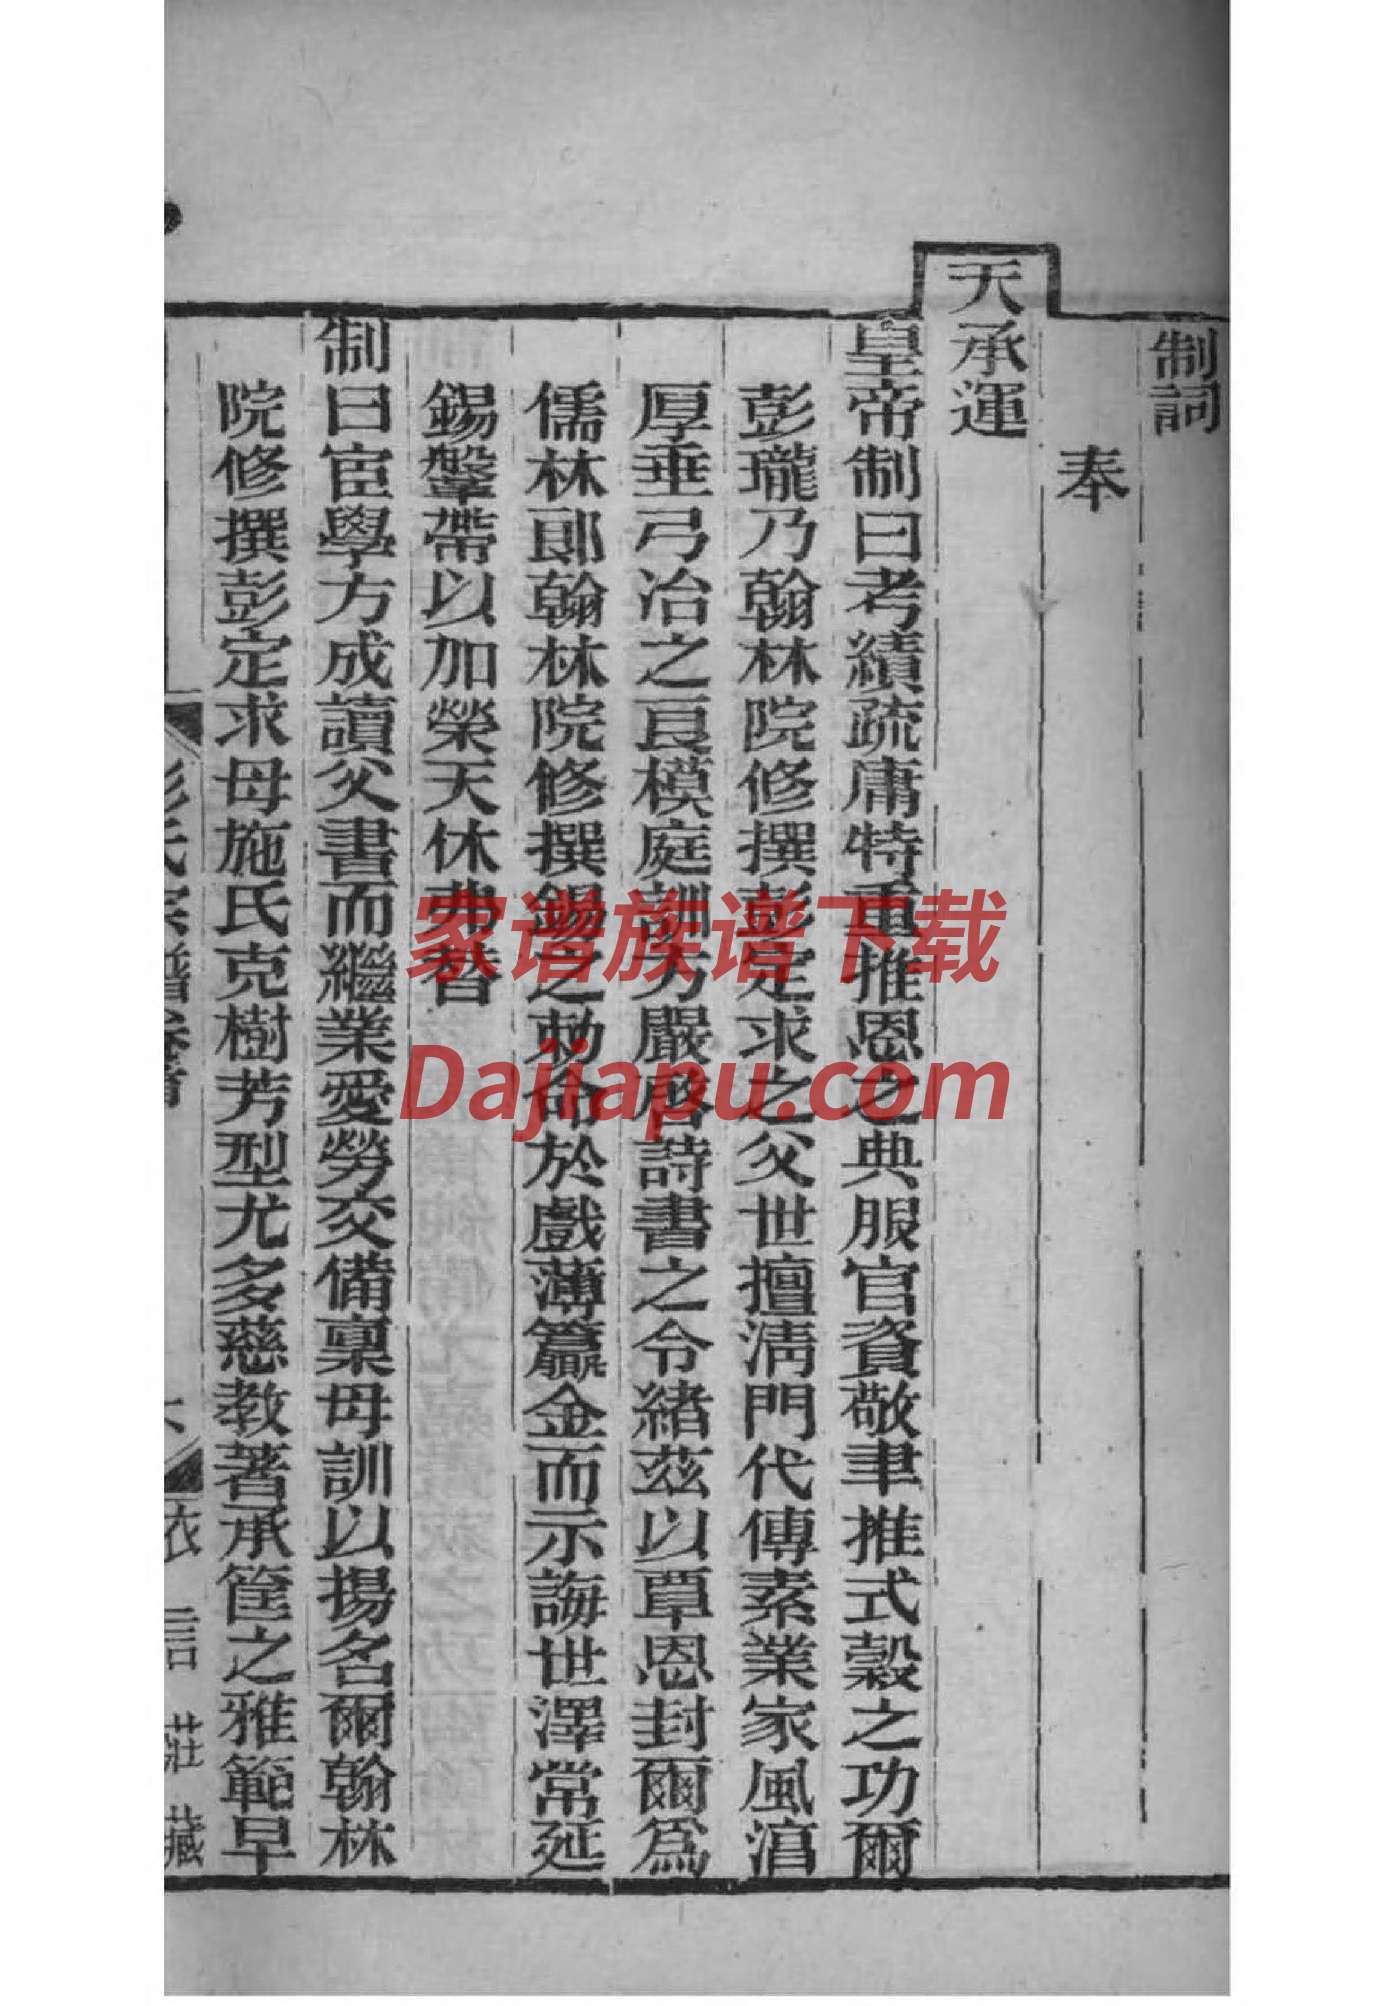 制詞
奉
天承運
皇帝制曰考績疏庸特重推恩之典服官資敬聿推式穀之功爾
彭瓏乃翰林院修撰彭定求之父世擅淸門代傳素業家風湻
厚垂弓冶之良模庭訓方嚴啓詩書之令緒茲以覃恩封爾爲
儒林郞翰林院修撰錫之勅命於戲薄籯金而示誨世澤常延
錫鞶帶以加榮天休弗替
制曰宦學方成讀父書而繼業愛勞交備稟母訓以揚名爾翰林
院修撰彭定求母施氏克樹芳型尤多慈教著承筐之雅範早
彭氏宗譜卷首
衣言莊藏
家谱族谱下载
Dajiapu.com